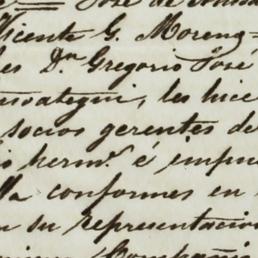 José de
Vicente G. Moreno
les Dn. Gregorio José
les hice
socios gerentes de
herms. é
lla conformes en
n su representacion
Compañia